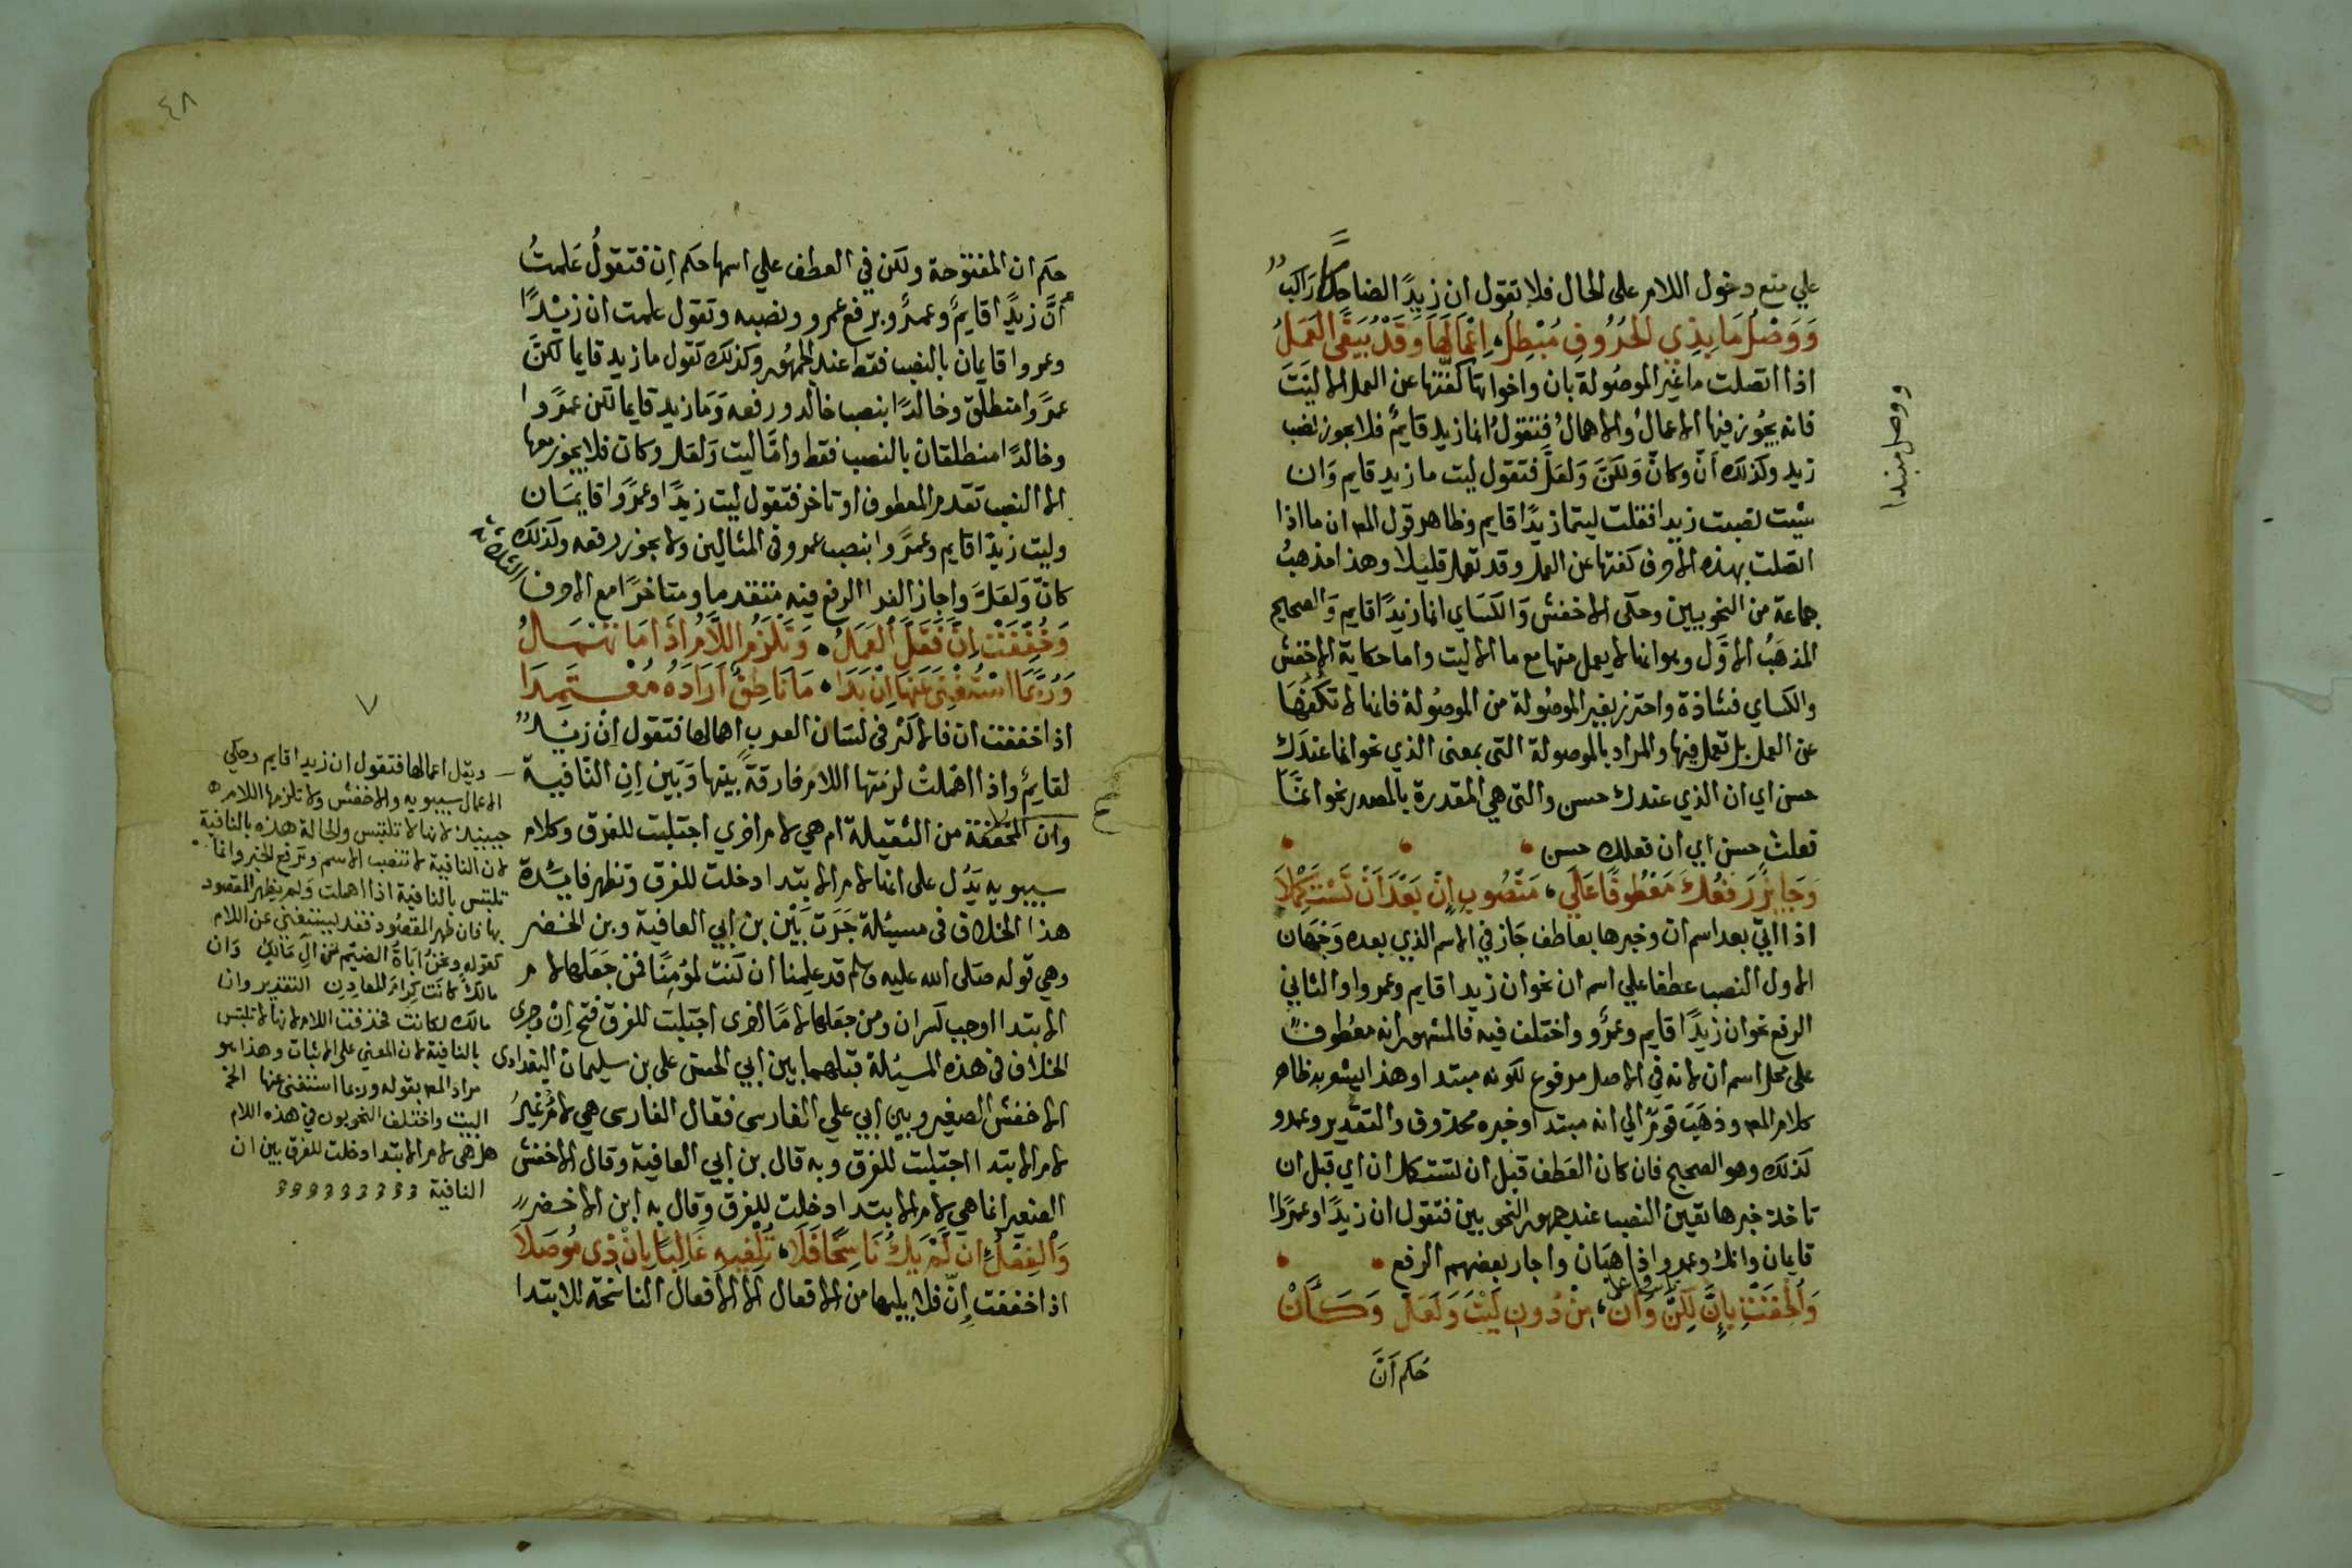 علي منع دخول اللام على الحال فلا تقول ان زيدًا لضاحكا راكب
وَوَصْلُ مَا بِذِي الحُرُوفِ مُبْطِلُ، اِعْمَالَهَا وَقَدْ يُبَقَّى العَمَلُ
اذا اتصلت ما غير الموصُولة بان واخواتها كفّتها عن العمل الا ليَتَ
فانه يجُوز فيها الاعمالُ والاهمالُ فتقولُ انما زيد قايمٌ فلا يجوز نصب
زيد وكذلك انّ وكانّ وَلكنّ وَلعَلَّ فتقول ليت ما زيد قايم وَان
شيت نصبت زيدا فقلت ليتما زيدًا قايم وظاهر قول المص ان ما اذا
اتصلت بهذه الاحرف كفتها عن العمل وقد تعمل قليلا وهذا مذهبُ
جماعة من النحويين وحكى الاخفش وَالكسَاي انما زيدًا قايم وَالصحيح
المذهَبُ الاوَّل وهو انه لا يعمل منها مع ما الا ليت واما حكاية الاخفش
والكساي فشاذة واحترز بغير الموصُولة من الموصُولة فانها لا تكفُهَا
عن العمل بل تعمل فيها والمراد بالموصولة التي بمعنى الذي نحو انما عندَك
حسن اي ان الذي عندك حسن والتي هي المقدرة بالمصدر نحو انمَا
فعلتَ حسن اي ان فعلك حسن
وَجَايزٌ رَفعُكَ مَعْطُوفًا عَلَي، مَنْصُوبِ اِنَّ بَعْدَ اَنْ تَسْتَكْمِلَا
اذا اتي بعد اسم ان وخبرها بعاطف جَاز في الاسم الذي بعده وَجهَان
الاول النصب عطفا علي اسم ان نحو ان زيدا قايم وعمروا والثاني
الرفع نحو ان زيدًا قايم وعمرٌو واختلف فيه فالمشهور انه معُطوفٌ
على محل اسم ان لانه في الاصل مرفوع لكونه مبتدا وهذا يشعر به ظاهر
كلام المص وذهَبَ قومٌ الي انه مبتدا وخبره محذوف والتقدير وعمرو
كذلك وهو الصحيح فان كان العَطف قبَل ان تستكمل ان اي قبل ان
تاخذ خبرها تعين النصب عند جمهور النحويين فتقول ان زيدًا وعمرًوا
قايمان وانك وعمروا ذاهبَان واجاز بعضهم الرفع
وَاُلحِقَتْ بِاِنَّ لكِنَّ وَاَنّ، مِنْ دُونِ لَيْتَ وَلَعَلَّ وَكَـــاَنّْ
حُكم اَنّ
ووصل مبتدا
٤٨
حكم ان المفتوحة ولكن في العطف علي اسمها حكم اِن فتقولُ عَلمتُ
اَنّ زيدًا قايمٌ وعمرٌو برفع عمرو ونصبه وتقول علمت ان زيْدًا
وعمروا قايمان بالنصب فقط عند الجمهُور وكذلك تقول ما زيد قايما لكنَّ
عمرًوا منطلق وخالدًا بنصب خالد ورفعه وَمَا زيد قايما لكن عمرًوا
وخالدًا منطلقان بالنصب فقط وامّا ليت وَلعَل وكان فلا يجوز معها
الا النصب تقدم المعطوف او تاخر فتقول ليت زيدًا وعمرًوا قايمَان
وليت زيدًا قايم وعمرًوا بنصب عمرو في المثالين ولا يجوز رفعه وكذلك
كانّ وَلعَلّ واجاز الفرا الرفع فيه متقدما ومتاخرًا مع الاحرف
الثلاثة
وَخُفِّفَتْ اِنَّ فَقَلَّ العَمَلُ، وَتَلْزَمُ اللَّامُ اِذَا مَا تُهْمَــلُ
وَرُبَّمَا اسْتُغْنِيَ عَنهَا اِنْ بَدَا، مَا نَاطِقٌ اَرَادَهُ مُعْــتَمِدَا
اذا خففت ان فالاكثر في لسَان العرب اهمالها فتقول اِنْ زيْدٌ
لقايمٌ واذا اهْمِلتْ لزمتها اللام فارقةً بينها وَبَين اِنِ النّافيـة
وان المخففة من الثقيلة ام هي لام اخري اجتلبت للفرق وكلام
سيبويه يَدُل على انها لام الابتدا دخلت للفرق وتظهر فايدة
هذا الخلاف في مسيلة جَرَت بَيْن بن ابي العافية وبن الاخضر
وهي قوله صَلى الله عليه وسلم قد علِمنا ان كنت لمؤمِنًا فمن جَعَلها لام
الابتدا اوجب كسر ان ومن جعَلها لامًا اخرى اجتلبت للفرق فتح اِنْ وجري
الخلاف في هذه المسيُلة قبلهما بين ابي الحسن على بن سليمان البغدادي
الاخفش الصغير وبين ابي علي الفارسي فقال الفارسي هي لامٌ غيرُ
لام الابتدا اجتلبت للفرق وبه قال بن ابي العافية وقال الاخفش
الصغير انما هي لام الابتدا دخلت للفرق وقال به ابن الاخضر
وَالفِعْلُ ان لَمْ يَكُ نَاسِخًا فَلَا، تُلْفِيه غَالِبًا بِاِنْ ذِي مُوصَلَا
اذا خففت اِنّ فلا يليها من الافعال الا الافعال الناسخة للابتدا
ويقل اعمالها فتقول ان زيدا قايم وحكي
الاعمال سيبويه والاخفش ولا تلزمها اللام
حينيذ لانها لا تلتبس والحالة هذه بالنافية
لان النافية لا تنصب الاسم وترفع الخبر وانما
تلتبس بالنافية اذا اهملت وَلم يظهر المقصود
بها فان ظهر المقصُود فقد يستغني عن اللام
كقوله وَنحْنُ اُبَاةُ الضَيْمِ مَن آلِ مَالِكٍ وَان
مالكٌ كانَت كِرَامَ المعادِن التقدير وان
مالك لكانت فحذفت اللام لانها لا تلتبس
بالنافية لان المعني على الاثبات وهذا هو
مراد المص بقوله وربما استغني عنها الخ
البيت واختلف النحويون في هذه اللام
هل هي لام الابتدا دخلت للفرق بين ان
النافية